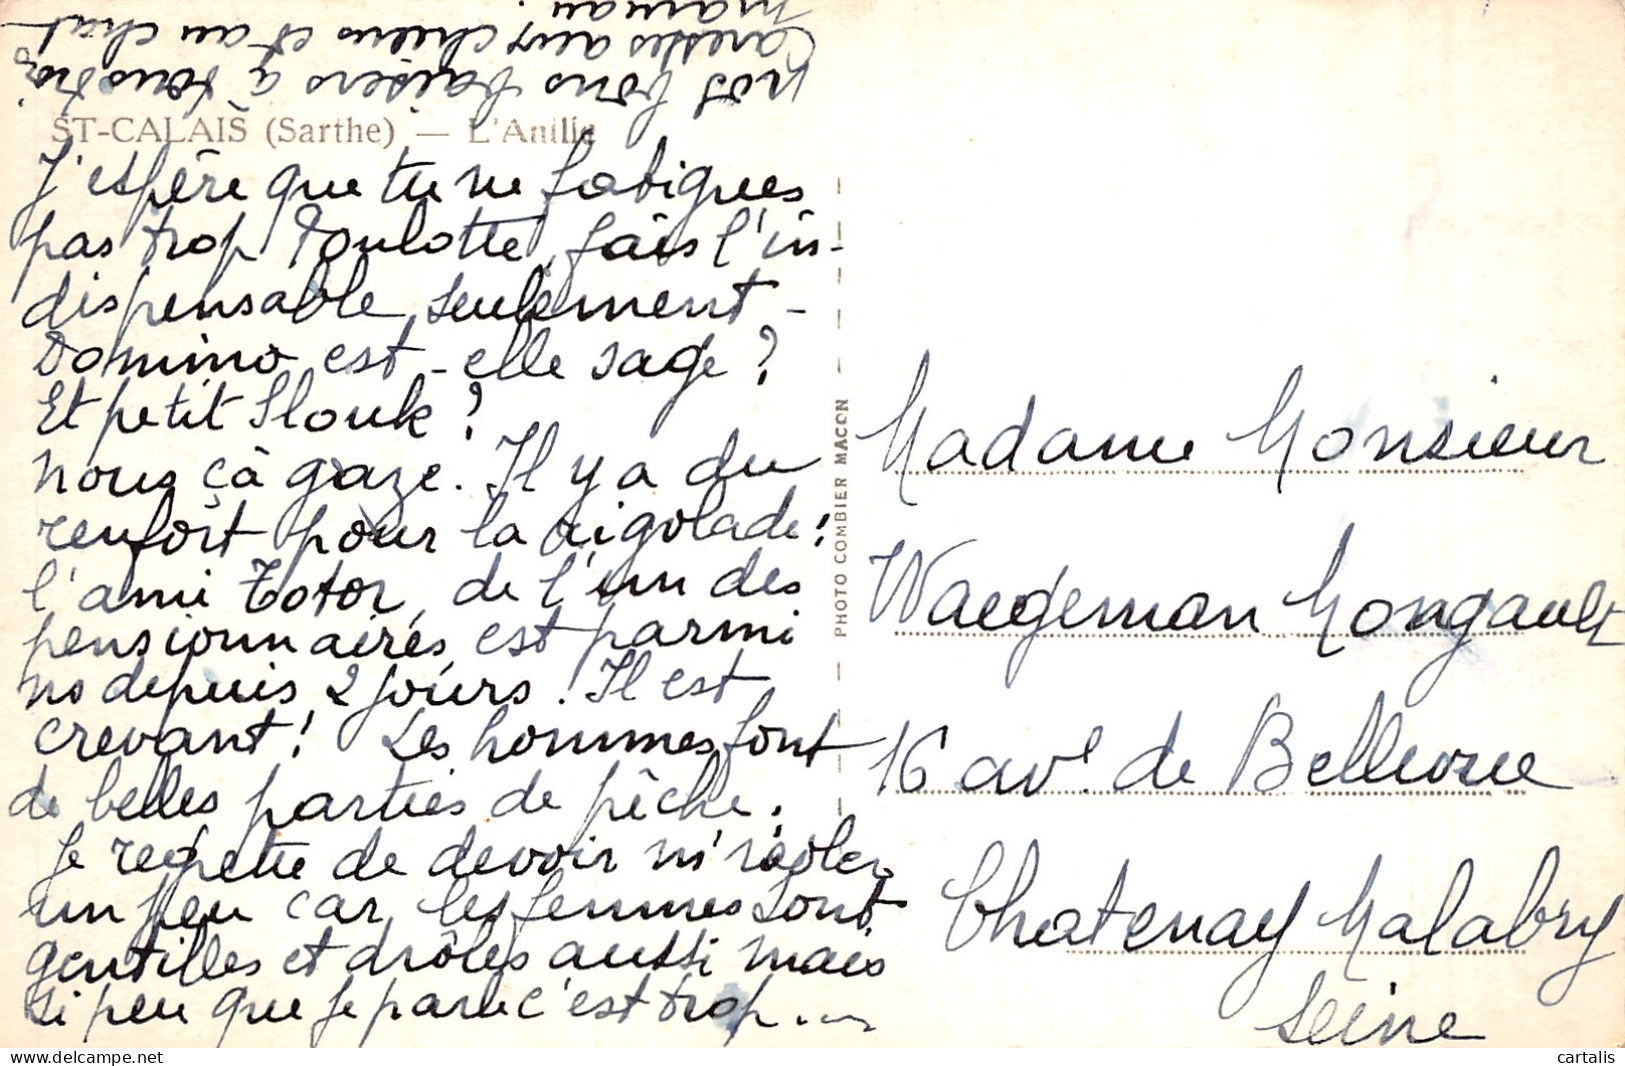 ST-CALAIS (Sarthe) — L'Anille
J'espère que tu ne fatigues
pas trop Toulotte, fais l'in-
dispensable, seulement -
Domino est-elle sage ?
Et petit Slouk ?
nous çà gaze. Il y a du
renfort pour la rigolade :
l'ami Totor, de l'un des
pensionnaires, est parmi
ns depuis 2 jours. Il est
crevant ! Les hommes font
de belles parties de pêche.
Je regrette de devoir m'isoler
un peu car les femmes sont
gentilles et drôles aussi mais
si peu que je parle c'est trop...
nos bons baisers à tous trois
Caresses aux chiens et au chat
maman.
PHOTO COMBIER MACON
Madame Monsieur
Waegeman Mongault
16 av. de Bellevue
Chatenay Malabry
Seine
cartalis